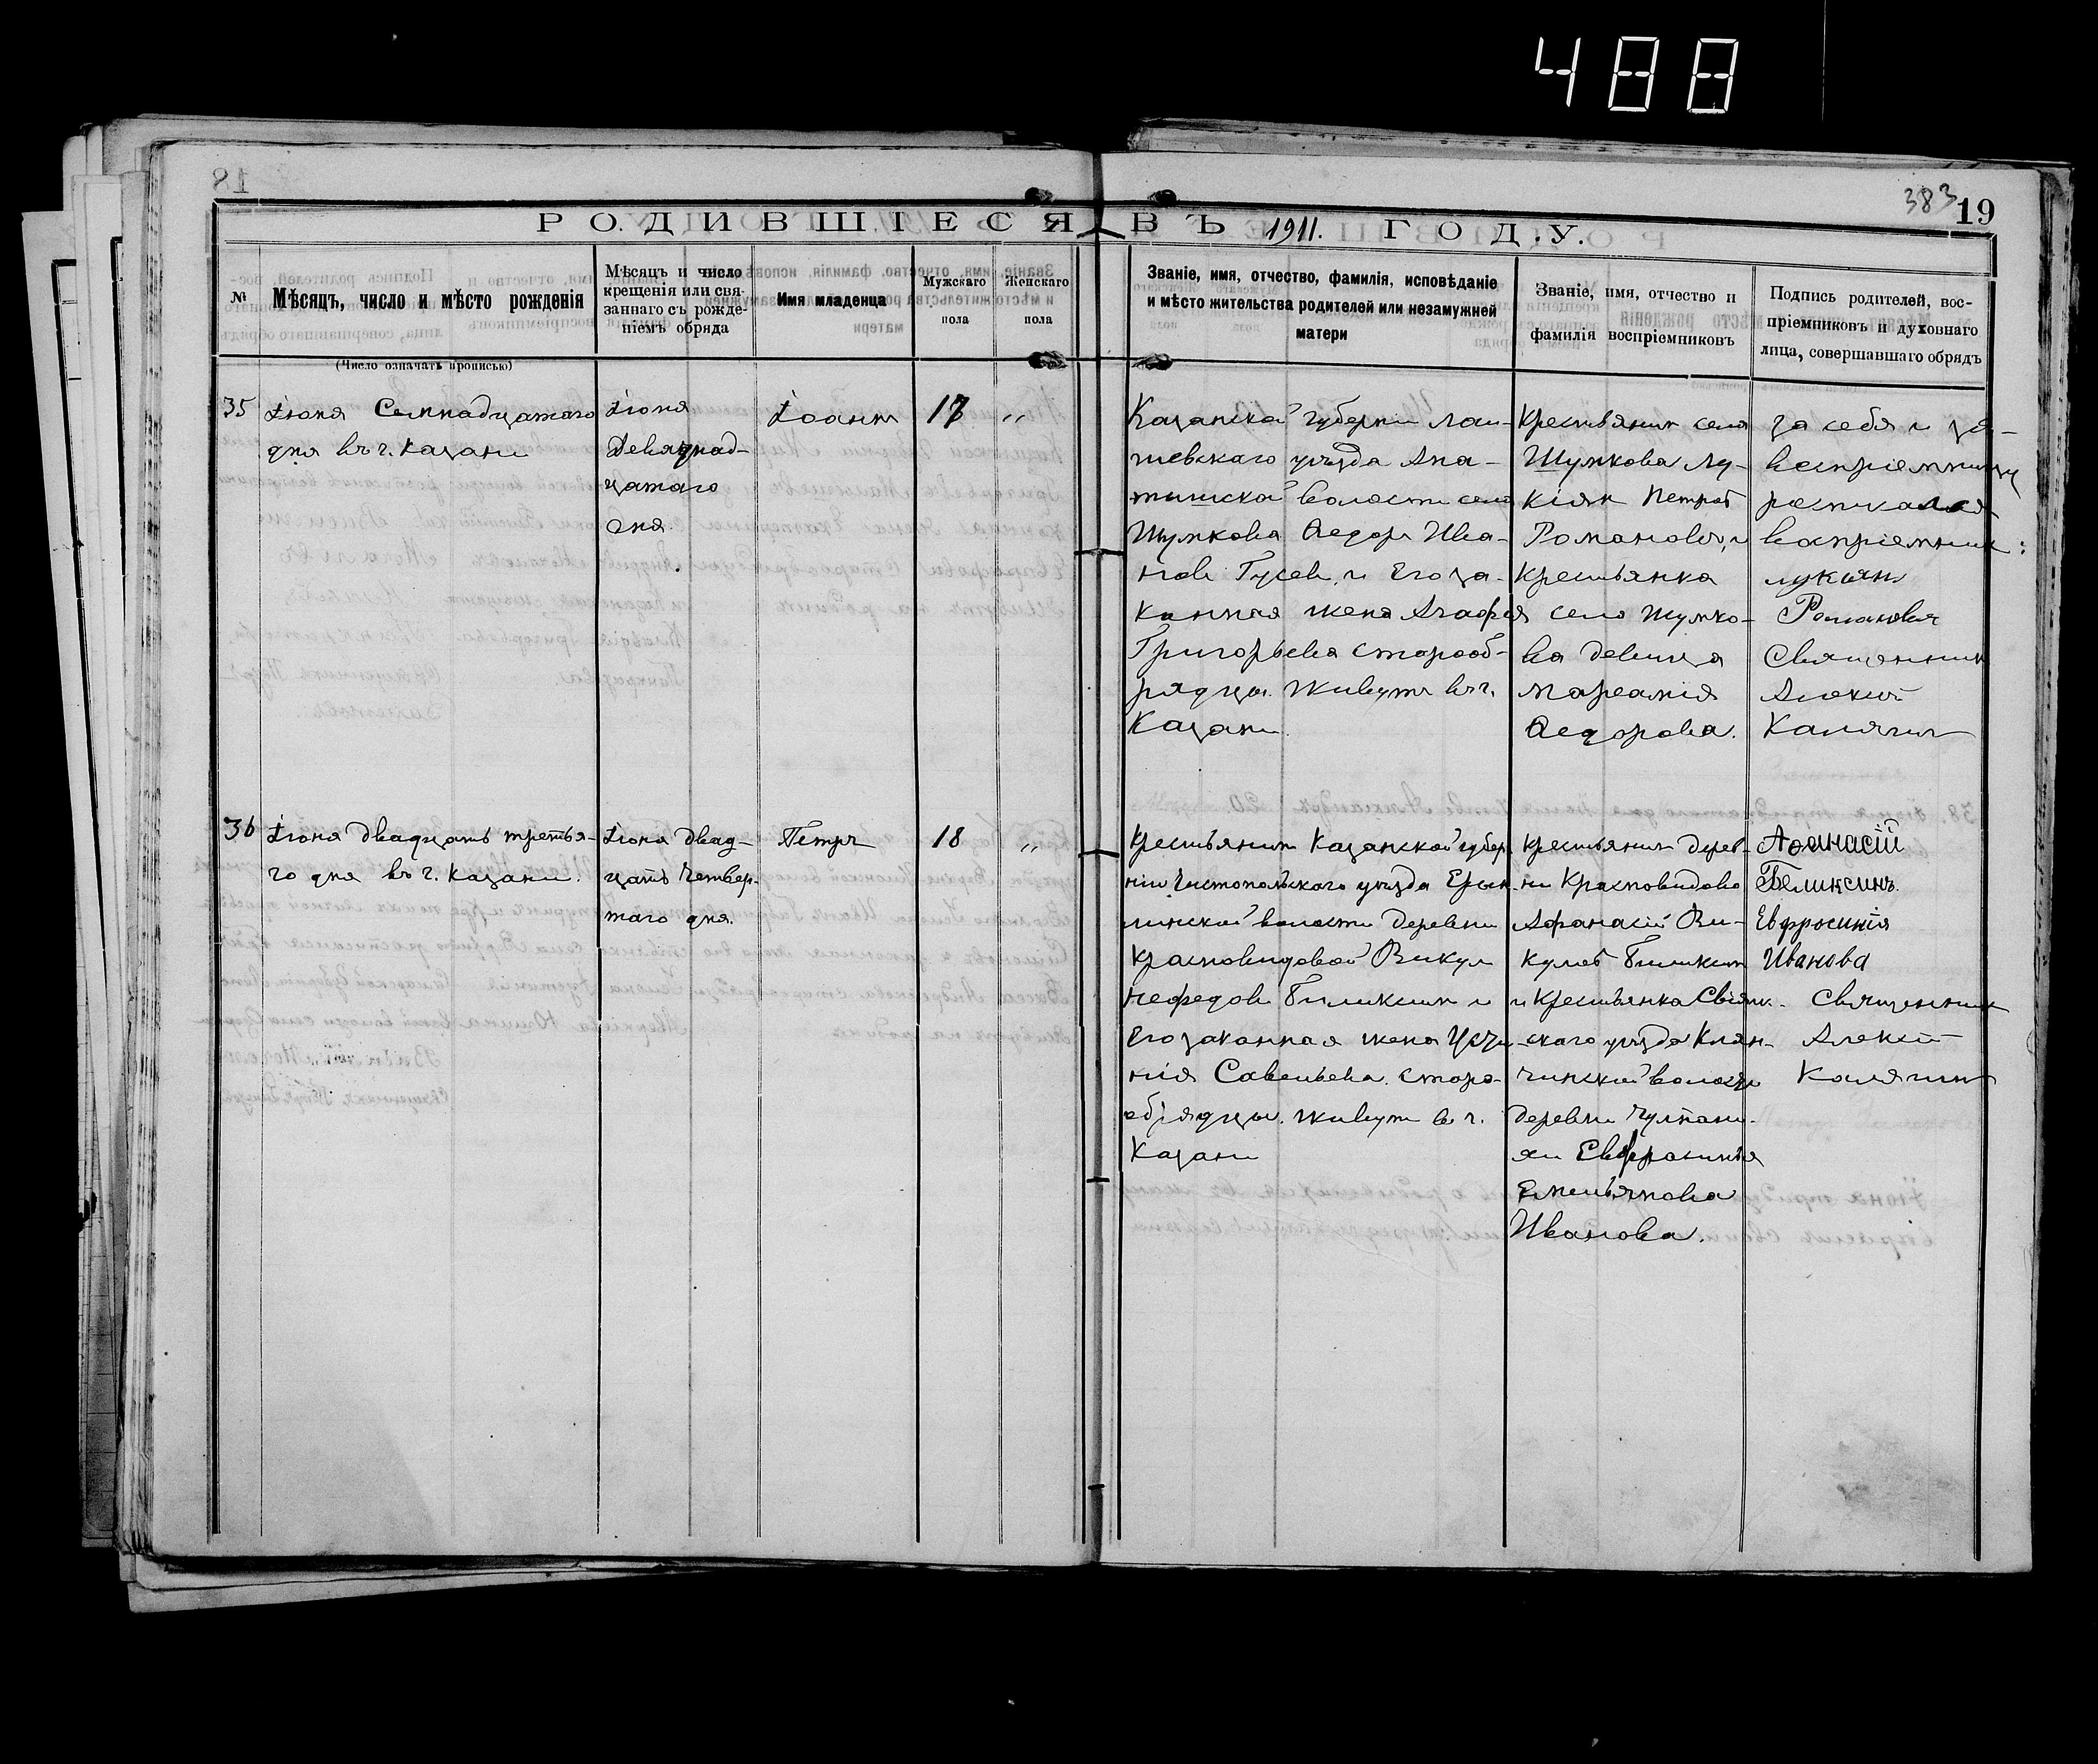 488
383
19
РОДИВШІЕСЯ ВЪ 1911. ГОДУ.
№
Мѣсяцъ, число и мѣсто рожденія
(Число означать прописью)
Мѣсяцъ и число
крещенія или свя-
заннаго съ рожде-
ніемъ обряда
Имя младенца
Мужскаго
пола
Женскаго
пола
Званіе, имя, отчество, фамилія, исповѣданіе
и мѣсто жительства родителей или незамужней
матери
Званіе, имя, отчество и
фамилія воспріемниковъ
Подпись родителей, вос-
пріемниковъ и духовнаго
лица, совершавшаго обрядъ
35
Іюня Семнадцатаго
дня въ г. Казани
Іюня
Девятнад-
цатаго
дня.
Іоаннъ
17
〃
Казанской губерніи Лаи-
шевскаго уѣзда
волости села
Шумкова Ѳедоръ Ива-
новъ Гусевъ, и Его за-
конная жена Агафья
Григорьева старооб-
рядцы. Живутъ въ г.
Казани.
Крестьянинъ села
Шумкова Лу-
кіян Петров
Романовъ, и
Крестьянка
село Шумко-
ва девица
Ѳедорова.
за себя и за-
воспріемницу
росписался
воспріемник:
лукиянъ
Романовъ
Священникъ
Алекій
Калягинъ
36
Іюня двадцать третья-
го дня въ г. Казани.
Іюня двад-
цать четвер-
таго дня.
Петръ
18
〃
Крестьянинъ Казанской губер
ніи Чистопольскаго уѣзда Ерык-
линской волости деревни
Красновидовой Викул
Нефедовъ Биликсин и
Его законная жена Усти-
нія Савельева. старо-
обрядцы. Живут в г.
Казани
Крестьянинъ дерев-
ни Красновидово
Афанасій Ви-
кулов Биликсин
и Крестьянка Свіяж-
скаго уѣзда Клян-
чинской волости
деревни
Евфросинія
Емельянова
Иванова.
Аѳанасій
Беликсинъ.
Евфросинія
Иванова
Священникъ
Алекій
Калягинъ